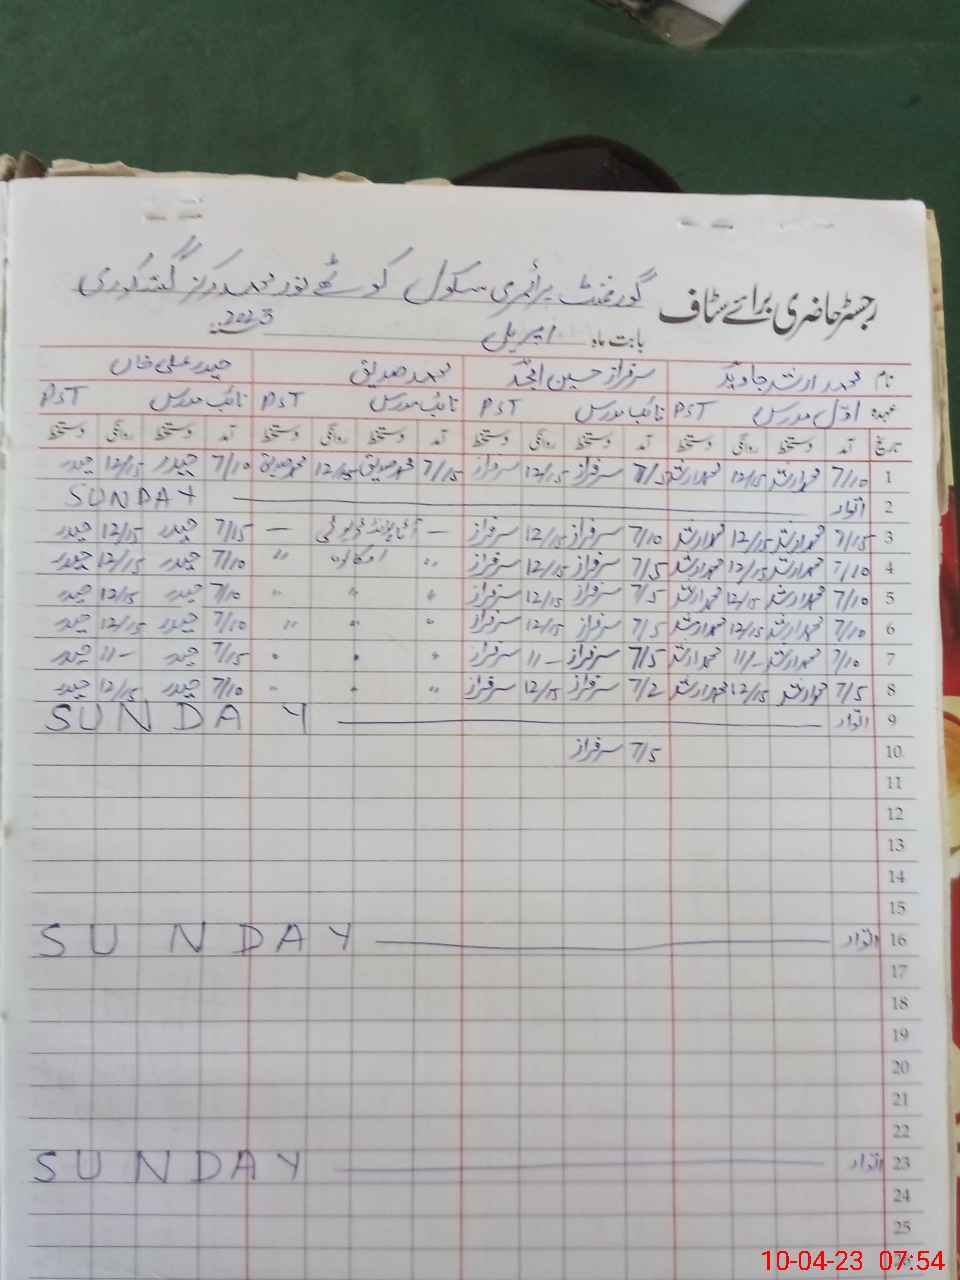 رجسٹر حاضری برائے سٹاف گورنمنٹ پرائمری سکول
بابت ماہ اپریل 2023
نام محمد ارشد جاوید سرفراز حسین امجد محمد صدیق حیدر علی خان
عہدہ اول مدرس PST نائب مدرس PST نائب مدرس PST نائب مدرس PST
تاریخ آمد دستخط روانگی دستخط آمد دستخط روانگی دستخط آمد دستخط روانگی دستخط آمد دستخط روانگی دستخط
1 7/10 محمد ارشد 12/15 محمد ارشد 7/5 سرفراز 12/15 سرفراز 7/15 محمد صدیق 12/15 محمد صدیق 7/10 حیدر 12/15 حیدر
2 اتوار SUNDAY
3 7/15 محمد ارشد 12/15 محمد ارشد 7/10 سرفراز 12/15 سرفراز — — 7/15 حیدر 12/15 حیدر
4 7/10 محمد ارشد 12/15 محمد ارشد 7/5 سرفراز 12/15 سرفراز " " 7/10 حیدر 12/15 حیدر
5 7/10 محمد ارشد 12/15 محمد ارشد 7/5 سرفراز 12/15 سرفراز " " " 7/10 حیدر 12/15 حیدر
6 7/10 محمد ارشد 12/15 محمد ارشد 7/5 سرفراز 12/15 سرفراز " " " 7/10 حیدر 12/15 حیدر
7 7/10 محمد ارشد 11/- محمد ارشد 7/5 سرفراز 11- سرفراز " " " 7/15 حیدر 11- حیدر
8 7/5 محمد ارشد 12/15 محمد ارشد 7/2 سرفراز 12/15 سرفراز " " " 7/10 حیدر 12/15 حیدر
9 اتوار SUNDAY
10 7/5 سرفراز
11
12
13
14
15
16 اتوار SUNDAY
17
18
19
20
21
22
23 اتوار SUNDAY
24
25
26
10-04-23 07:54